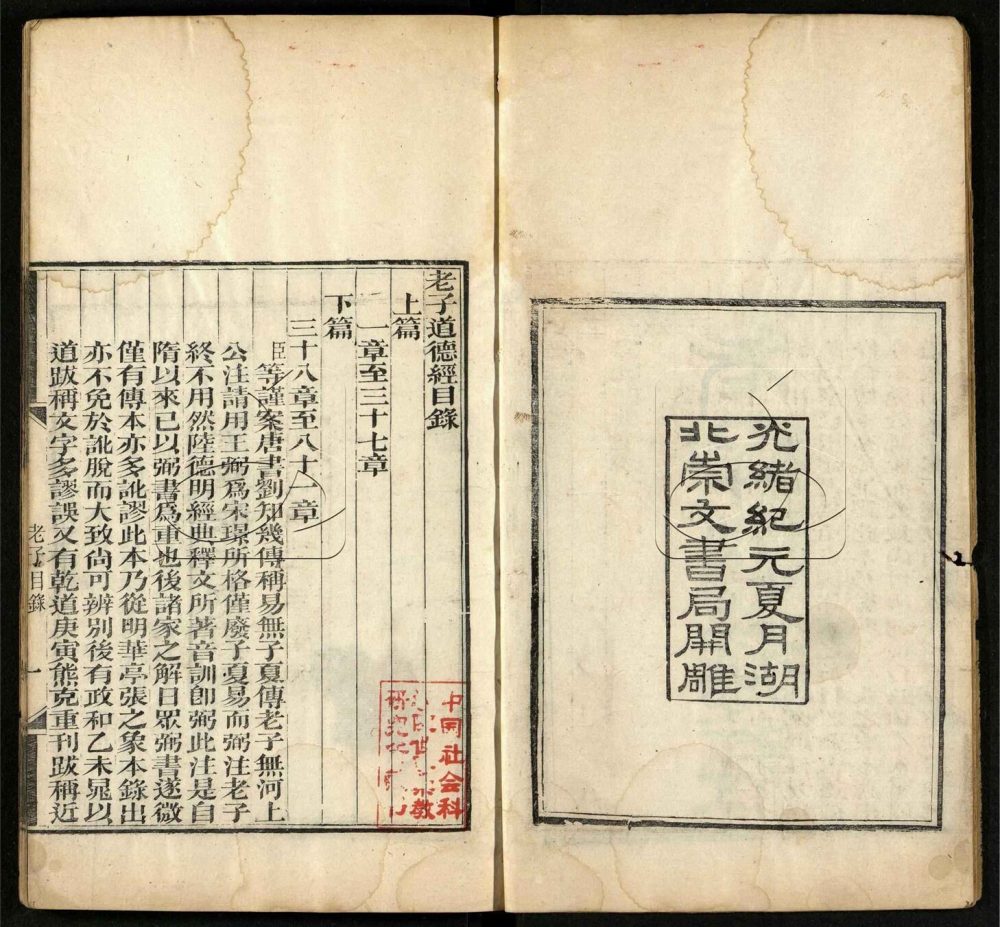 光緒紀元夏月湖
北崇文書局開雕
老子道德經目錄
上篇
一章至三十七章
下篇
三十八章至八十一章
臣等謹案唐書劉知幾傳稱易無子夏傳老子無河上
公注請用王弼為宋璟所格僅廢子夏易而弼注老子
終不用然陸德明經典釋文所著音訓卽弼此注是自
隋以來已以弼書為重也後諸家之解日眾弼書遂微
僅有傳本亦多訛謬此本乃從明華亭張之象本錄出
亦不免於訛脫而大致尚可辨別後有政和乙未晁以
道跋稱文字多謬誤又有乾道庚寅熊克重刊跋稱近
老子目錄
一
中国社会科
教